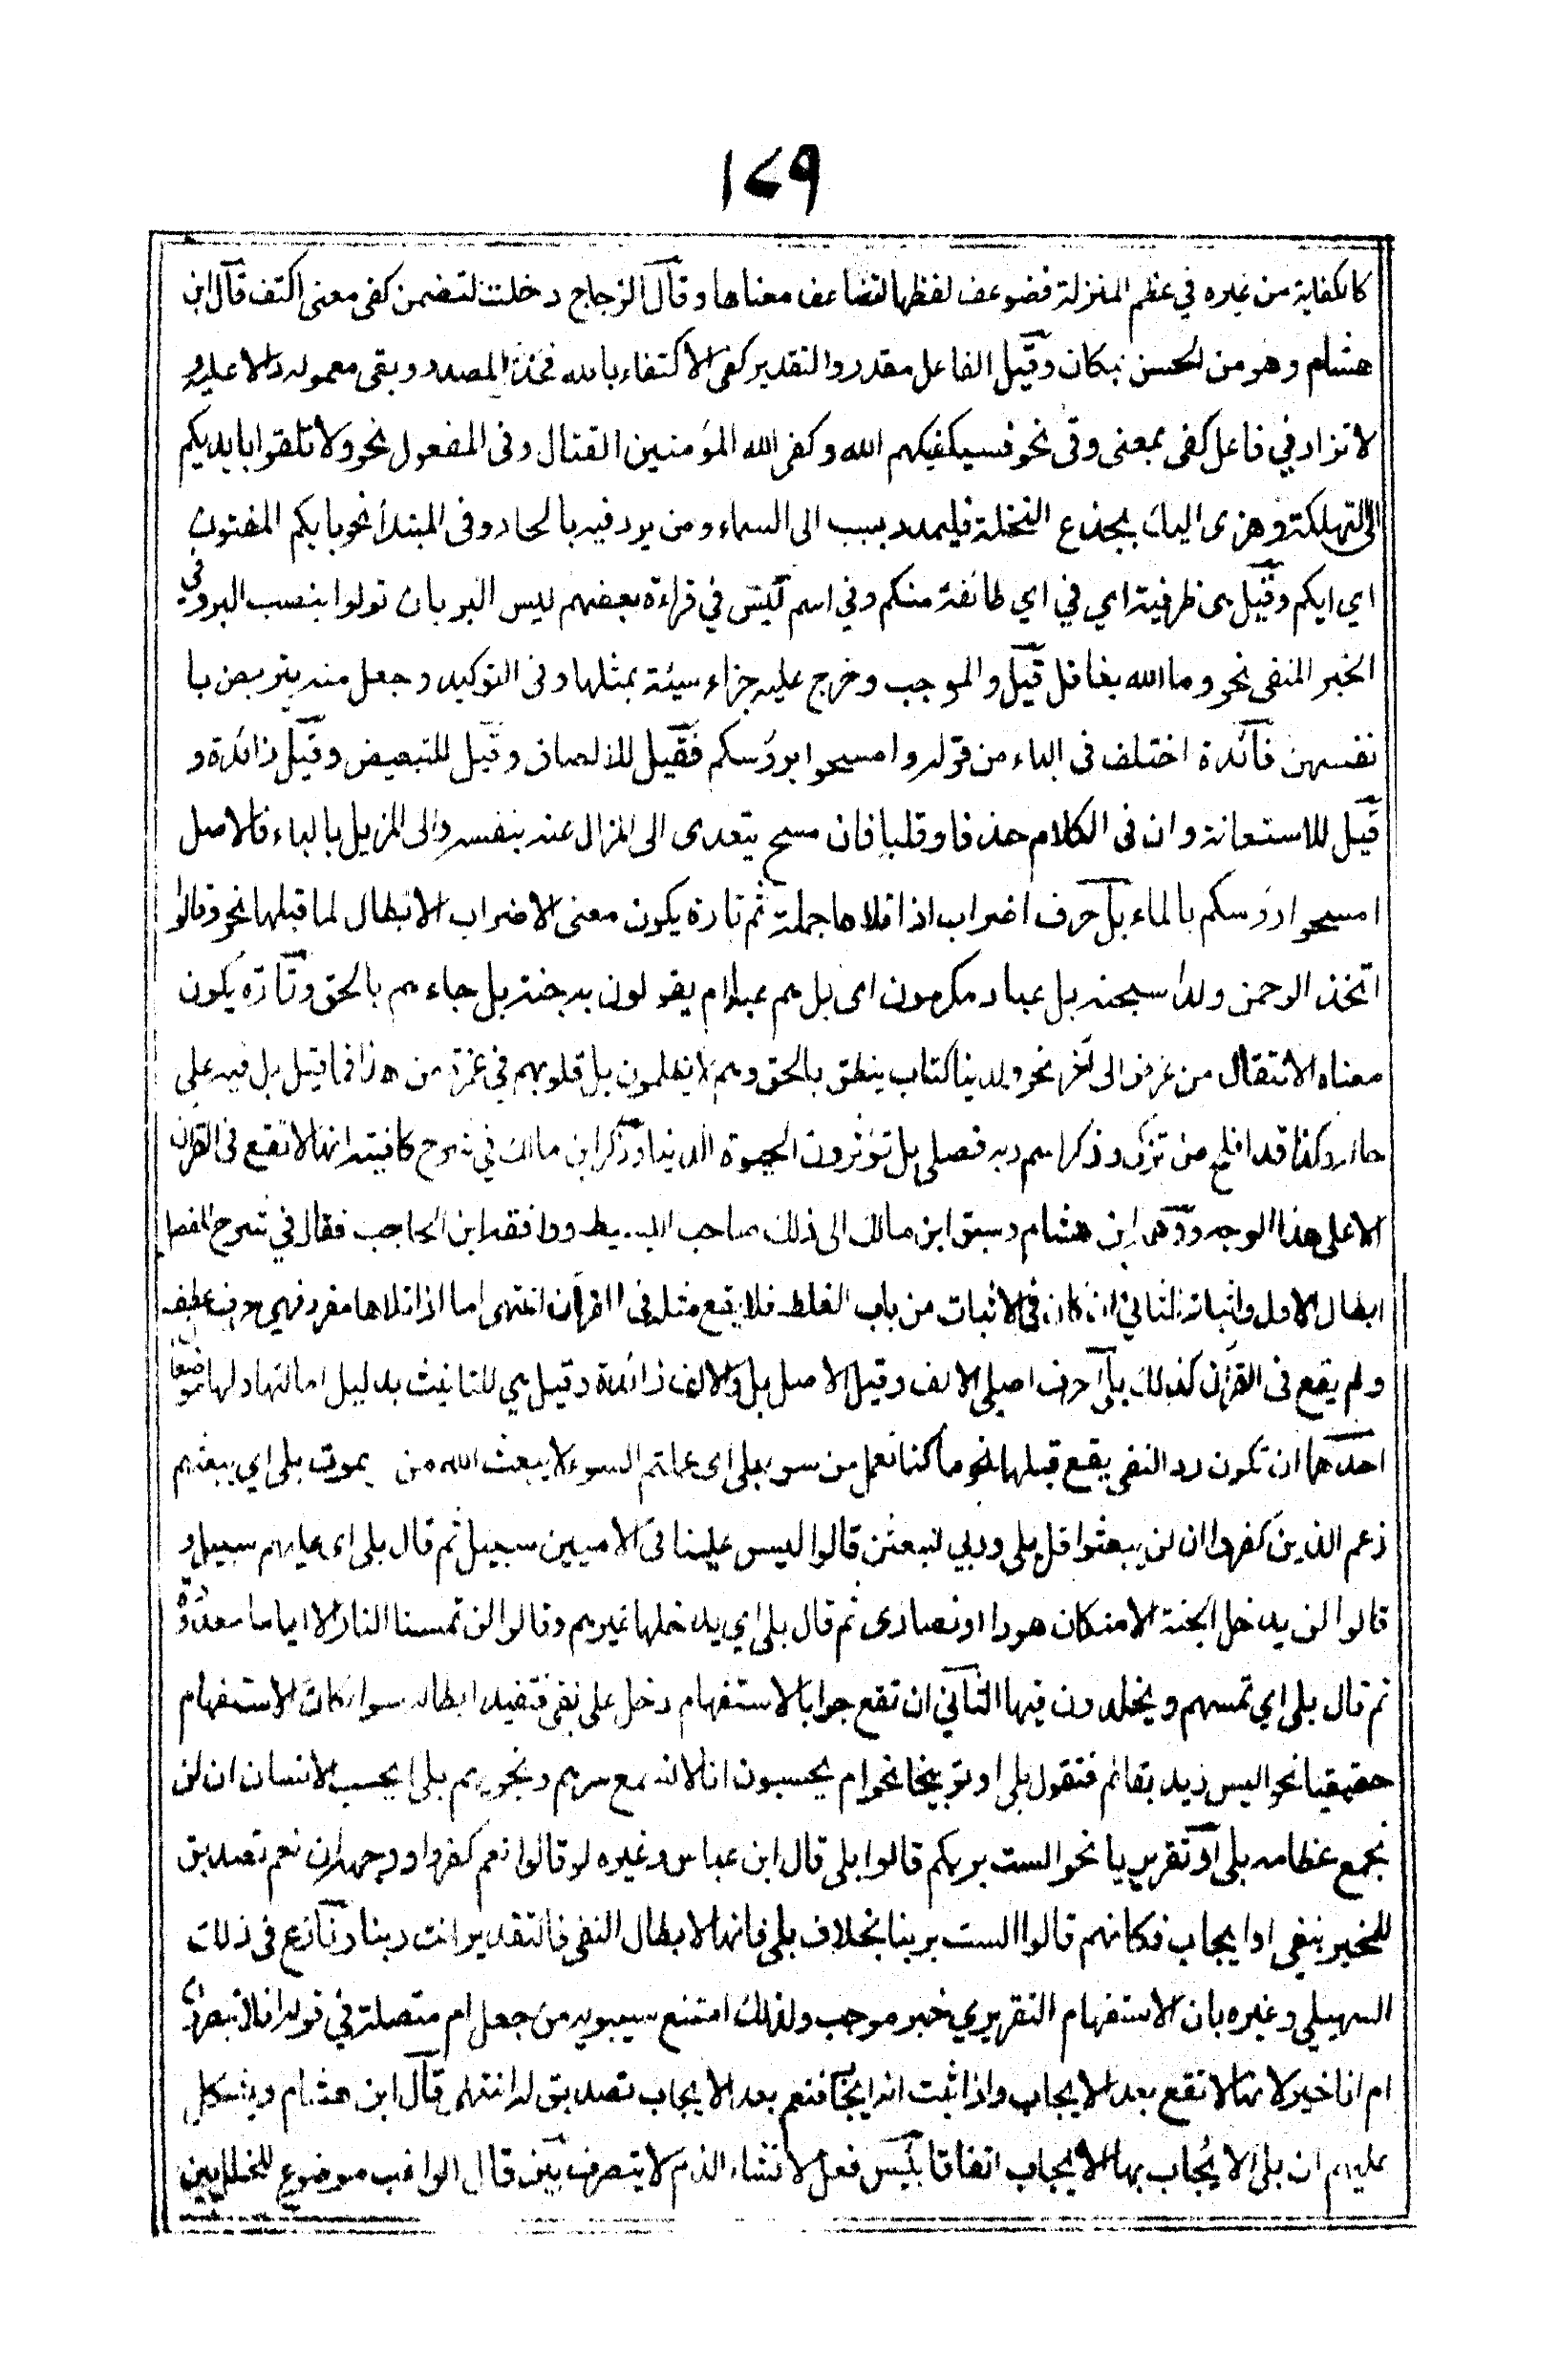 ١٧٩
كالكفاية من غيره في عظم المنزلة فضوعف لفظها لتضاعف معناها وقال الزجاج دخلت لتضمن كفى معنى اكتف قال ابن
هشام وهو من الحسن بمكان وقيل الفاعل مقدر والتقدير كفى الاكتفاء بالله فحذف المصدر وبقى معموله دالا عليه و
لا تزاد في فاعل كفى بمعنى وقى نحو فسيكفيكهم الله وكفى الله المؤمنين القتال وفى المفعول نحو ولا تلقوا بايديكم
الى التهلكة وهزى اليك بجذع النخلة فليمدد بسبب الى السماء ومن يرد فيه بالحاد وفى المبتدأ نحو بايكم المفتون
اي ايكم وقيل هى ظرفية اي في اي طائفة منكم وفي اسم ليس في قراءة بعضهم ليس البر بان تولوا بنصب البر وفي
الخبر المنفى نحو وما الله بغافل قيل والموجب وخرج عليه جزاء سيئة بمثلها وفى التوكيد وجعل منه يتربصن با
نفسهن فائدة اختلف فى الباء من قوله وامسحوا برؤسكم فقيل للالصاق وقيل للتبعيض وقيل زائدة و
قيل للاستعانة وان فى الكلام حذفا وقلبا فان مسح يتعدى الى المزال عنه بنفسه والى المزيل بالباء فالاصل
امسحوا رؤسكم بالماء بل حرف اضراب اذا تلاها جملة ثم تارة يكون معنى الاضراب الابطال لما قبلها نحو وقالوا
اتخذ الرحمن ولدا سبحنه بل عباد مكرمون اى بل هم عباد ام يقولون به جنة بل جاءهم بالحق وتارة يكون
معناه الانتقال من غرض الى آخر نحو ولدينا كتاب ينطق بالحق وهم لا يظلمون بل قلوبهم في غمرة من هذا فما قبل بل فيه على
حاله وكذا قد افلح من تزكى وذكر اسم ربه فصلى بل تؤثرون الحيوة الدنيا وذكر ابن مالك في شرح كافيته انها لا تقع فى القرآن
الا على هذا الوجه ووهمه ابن هشام وسبق ابن مالك الى ذلك صاحب البسيط ووافقه ابن الحاجب فقال في شرح المفصل
ابطال الاول واثباته للثاني ان كان فى الاثبات من باب الغلط فلا يقع مثله فى القرآن انتهى اما اذا تلاها مفرد فهي حرف عطف
ولم يقع فى القرآن كذلك بلى حرف اصلى الالف وقيل الاصل بل والالف زائدة وقيل هي للتانيث بدليل امالتها ولها موضعان
احدهما ان تكون رد النفى يقع قبلها نحو ما كنا نعمل من سوء بلى اى عملتم السوء لا يبعث الله من يموت بلى اي يبعثهم
زعم الذين كفروا ان لن يبعثوا قل بلى وربي لتبعثن قالوا ليس علينا فى الاميين سبيل ثم قال بلى اى عليهم سبيل و
قالوا لن يدخل الجنة الا من كان هودا او نصارى ثم قال بلى اي يدخلها غيرهم وقالوا لن تمسنا النار الا اياما معدودة
ثم قال بلى اي تمسهم ويخلدون فيها الثاني ان تقع جوابا لاستفهام دخل على نفى فتفيد ابطاله سواء كان الاستفهام
حقيقيا نحو اليس زيد بقائم فتقول بلى او توبيخا نحو ام يحسبون انا لا نسمع سرهم ونجويهم بلى ايحسب الانسان ان لن
نجمع عظامه بلى او تقريريا نحو الست بربكم قالوا بلى قال ابن عباس وغيره لو قالوا نعم كفروا ووجهه ان نعم تصديق
للمخبر بنفى او ايجاب فكانهم قالوا الست بربنا بخلاف بلى فانها لابطال النفى فالتقدير انت ربنا ونازع فى ذلك
السهيلي وغيره بان الاستفهام التقريري خبر موجب ولذلك امتنع سيبويه من جعل ام متصلة في قوله افلا تبصرون
ام انا خير لانها لا تقع بعد الايجاب واذا ثبت انه ايجاب فنعم بعد الايجاب تصديق له انتهى قال ابن هشام ويشكل
عليهم ان بلى لا يجاب بها الايجاب اتفاقا بئس فعل لانشاء الذم لا يتصرف بين قال الراغب موضوع للخلل بين